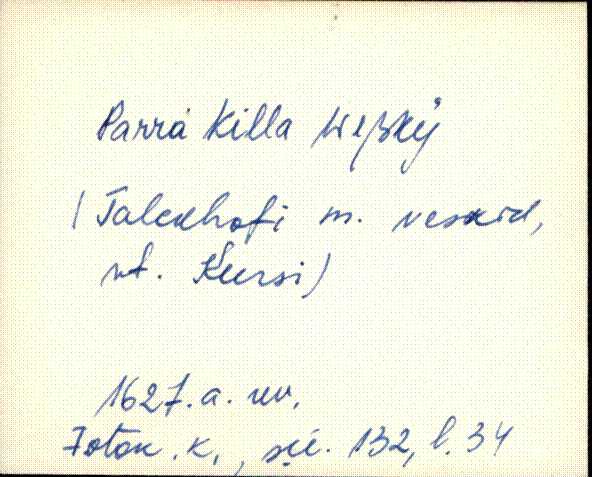 Parra Killa Weßkÿ
(Talckhofi m. veskid,
vt. Kursi)
1627. a. rev.
Fotok. k., sü. 132, l. 34